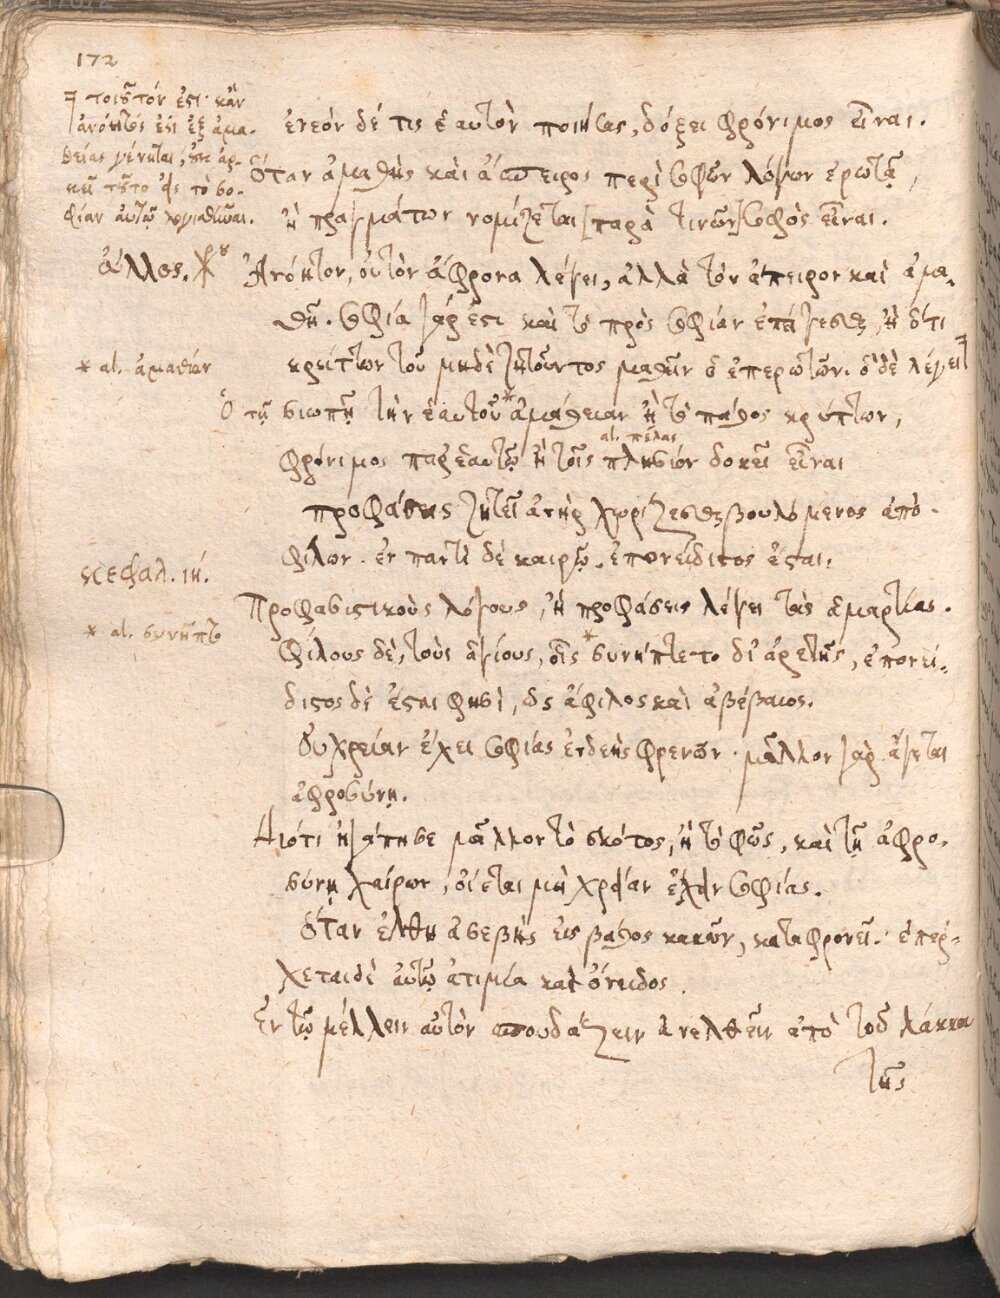 172
τοιοῦτόν ἐστι· κἂν
ἀνόητός ἐστι ἐξ ἀμα-
θείας γένηται, οὐκ ἀρ-
κεῖ τοῦτο εἰς τὸ σο-
φίαν αὐτῷ λογισθῆναι.
ἐνεόν δέ τις ἑαυτὸν ποιήσας, δόξει φρόνιμος εἶναι.
Ὅταν ἀμαθὴς καὶ ἄπειρος περὶ σοφῶν λόγων ἐρωτᾷ,
ἢ πραγμάτων νομίζεται [παρὰ τινῶν] σοφὸς εἶναι.
ἄλλος.
Ἀνόητον, οὐ τὸν ἄφρονα λέγει, ἀλλὰ τὸν ἄπειρον καὶ ἀμα-
θῆ. σοφία γάρ ἐστι καὶ τὸ πρὸς σοφίαν ἐπείγεσθαι, ἢ ὅτι
* al. ἀμαθίαν
κρείττων τοῦ μηδὲ ζητοῦντος μαθεῖν ὁ ἐπερωτῶν. ὁ δὲ λέγει
Ὁ τῇ σιωπῇ τὴν ἑαυτοῦ * ἀμάθειαν ἢ τὸ πάθος κρύπτων,
al. πέλας
φρόνιμος παρ' ἑαυτῷ ἢ τοῖς πλησίον δοκεῖ εἶναι
προφάσεις ζητεῖ ἀνὴρ χωρίζεσθαι βουλόμενος ἀπὸ
φίλων. ἐν παντὶ δὲ καιρῷ. ἐπονείδιστος ἔσται.
κεφαλ. ιη.
Προφασιστικοὺς λόγους, ἢ προφάσεις λέγει τὰς ἁμαρτίας.
* al. συνῆπτο
Φίλους δὲ, τοὺς ἁγίους, οἷς * συνήπτετο δι' ἀρετῆς, ἐπονεί-
διστος δὲ ἔσται φησὶ, ὡς ἄφιλος καὶ ἀβέβαιος.
Οὐ χρείαν ἔχει σοφίας ἐνδεὴς φρενῶν. μᾶλλον γὰρ ἄγεται
ἀφροσύνῃ.
Διότι ἠγάπησε μᾶλλον τὸ σκότος, ἢ τὸ φῶς, καὶ τῇ ἀφρο-
σύνῃ χαίρων, οἴεται μὴ χρείαν ἔχειν σοφίας.
Ὅταν ἔλθῃ ἀσεβὴς εἰς βάθος κακῶν, καταφρονεῖ· ἐπέρ-
χεται δὲ αὐτῷ ἀτιμία καὶ ὄνειδος.
Ἐν τῷ μέλλειν αὐτὸν σπουδάζειν ἀνελθεῖν ἀπὸ τοῦ λάκκου
τῆς